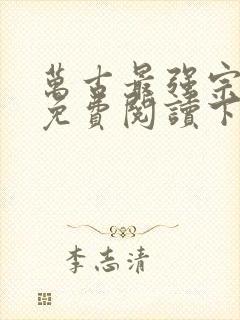 萬古最强宗
免費閱讀下
李志清